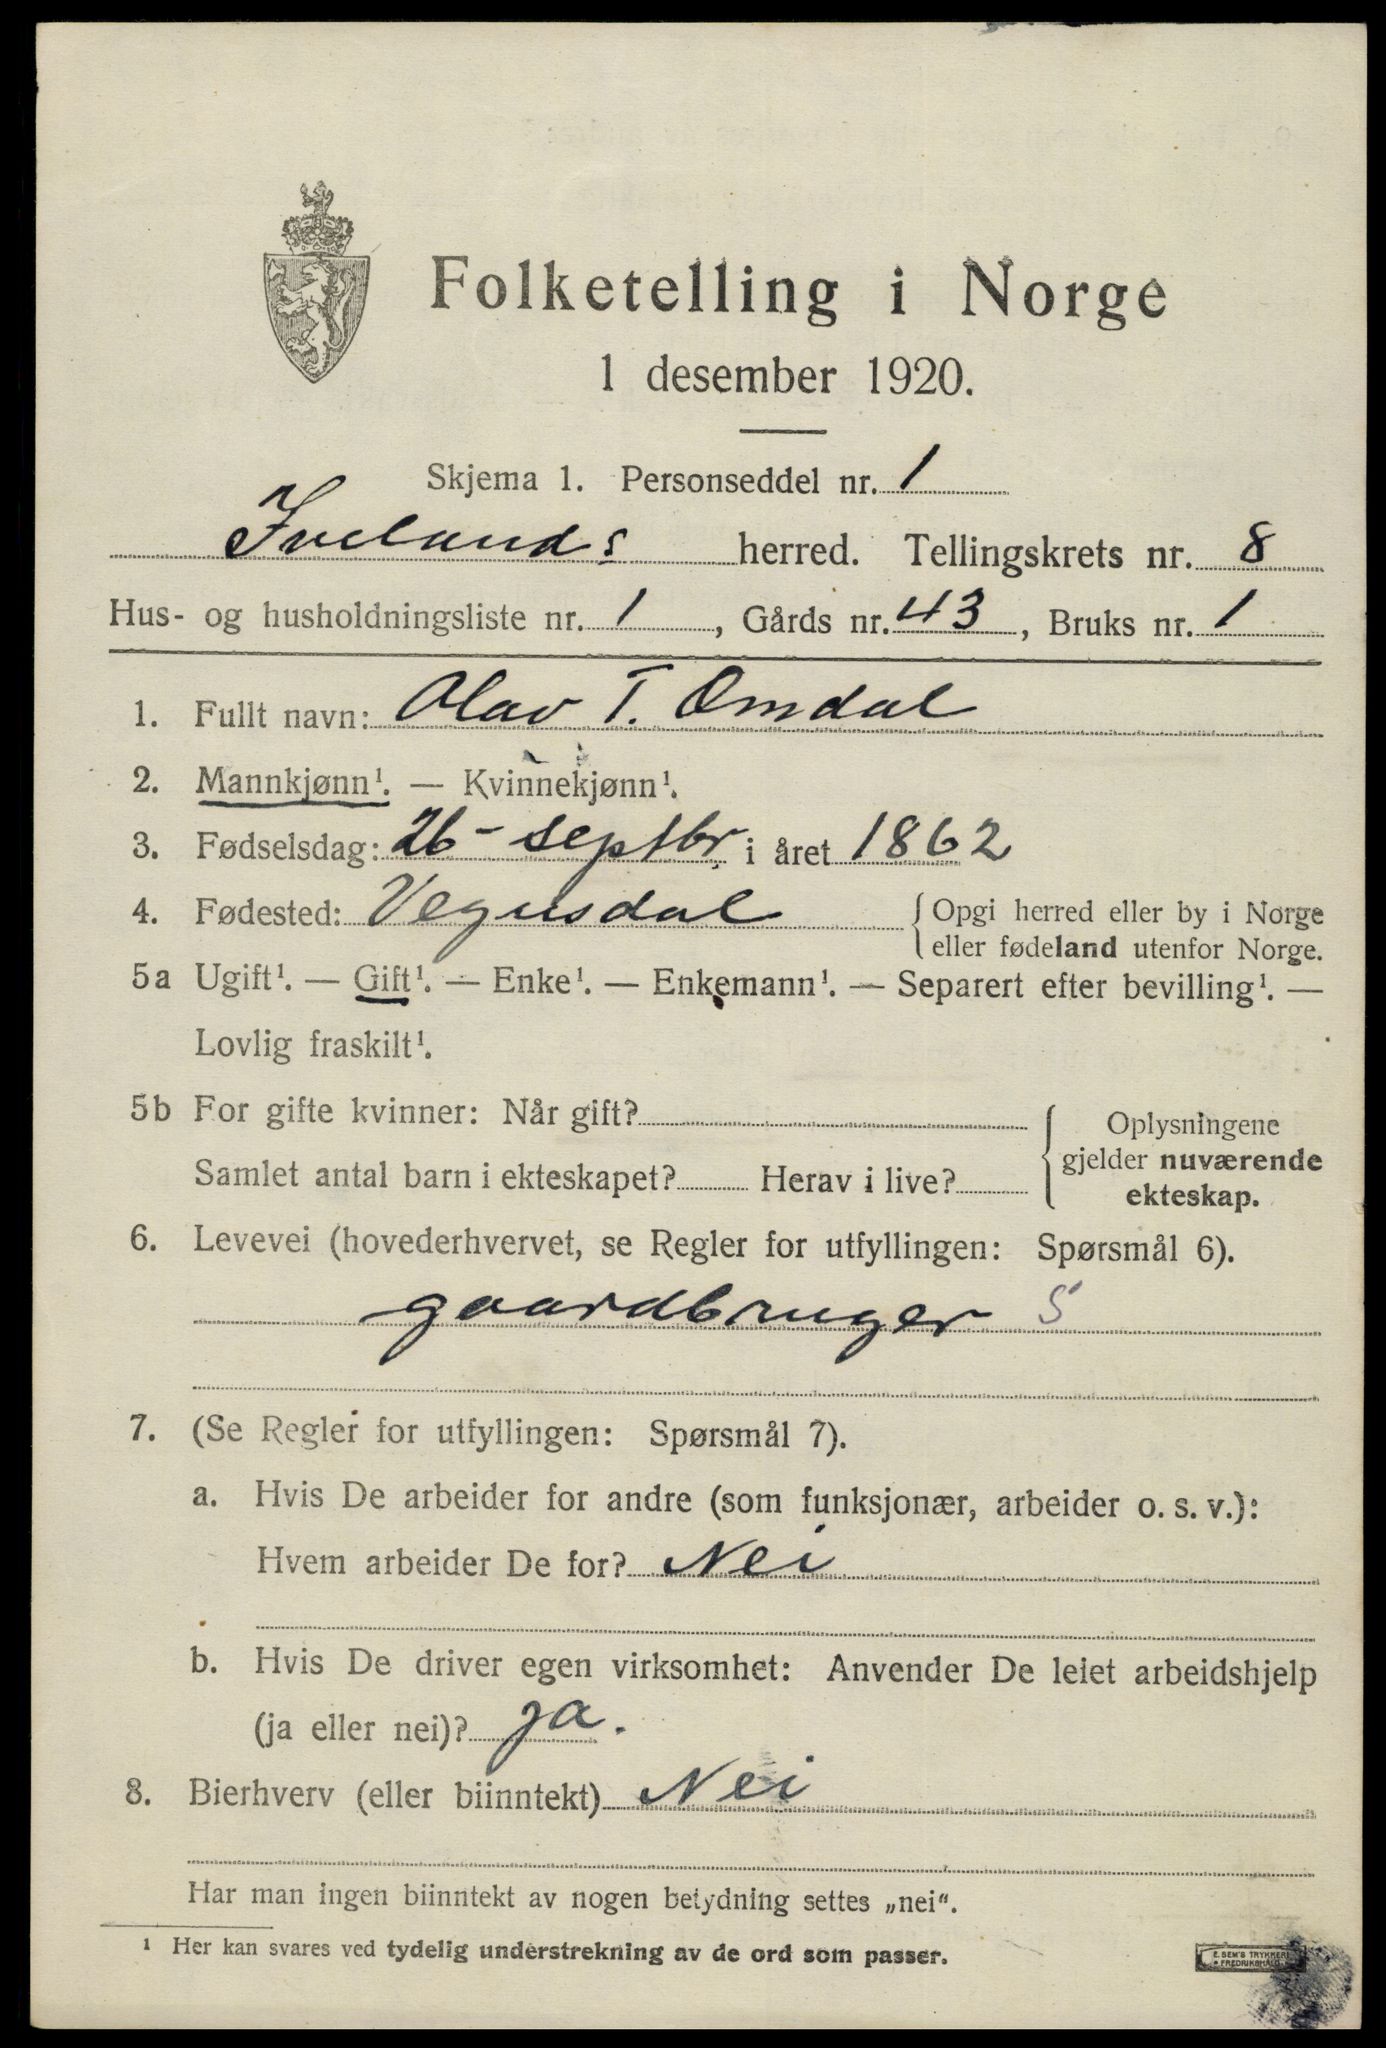 Folketelling i Norge
1 desember 1920.
Skjema 1. Personseddel nr. 1
Ivelands herred. Tellingskrets nr. 8
Hus- og husholdningsliste nr. 1, Gårds nr. 43, Bruks nr. 1
1. Fullt navn: Olav T. Omdal
2. Mannkjønn¹. — Kvinnekjønn¹.
3. Fødselsdag: 26 - septbr. i året 1862
4. Fødested: Vegusdal {Opgi herred eller by i Norge
eller fødeland utenfor Norge.
5a Ugift¹. — Gift¹. — Enke¹. — Enkemann¹. — Separert efter bevilling¹. —
Lovlig fraskilt¹.
5b For gifte kvinner: Når gift?
Samlet antal barn i ekteskapet? Herav i live?
{Oplysningene
gjelder nuværende
ekteskap.
6. Levevei (hovederhvervet, se Regler for utfyllingen: Spørsmål 6).
gaardbruger S
7. (Se Regler for utfyllingen: Spørsmål 7).
a. Hvis De arbeider for andre (som funksjonær, arbeider o. s. v.):
Hvem arbeider De for? Nei
b. Hvis De driver egen virksomhet: Anvender De leiet arbeidshjelp
(ja eller nei)? ja.
8. Bierhverv (eller biinntekt) Nei
Har man ingen biinntekt av nogen betydning settes „nei“.
¹ Her kan svares ved tydelig understrekning av de ord som passer.
E. SEM'S TRYKKERI
FREDRIKSHALD